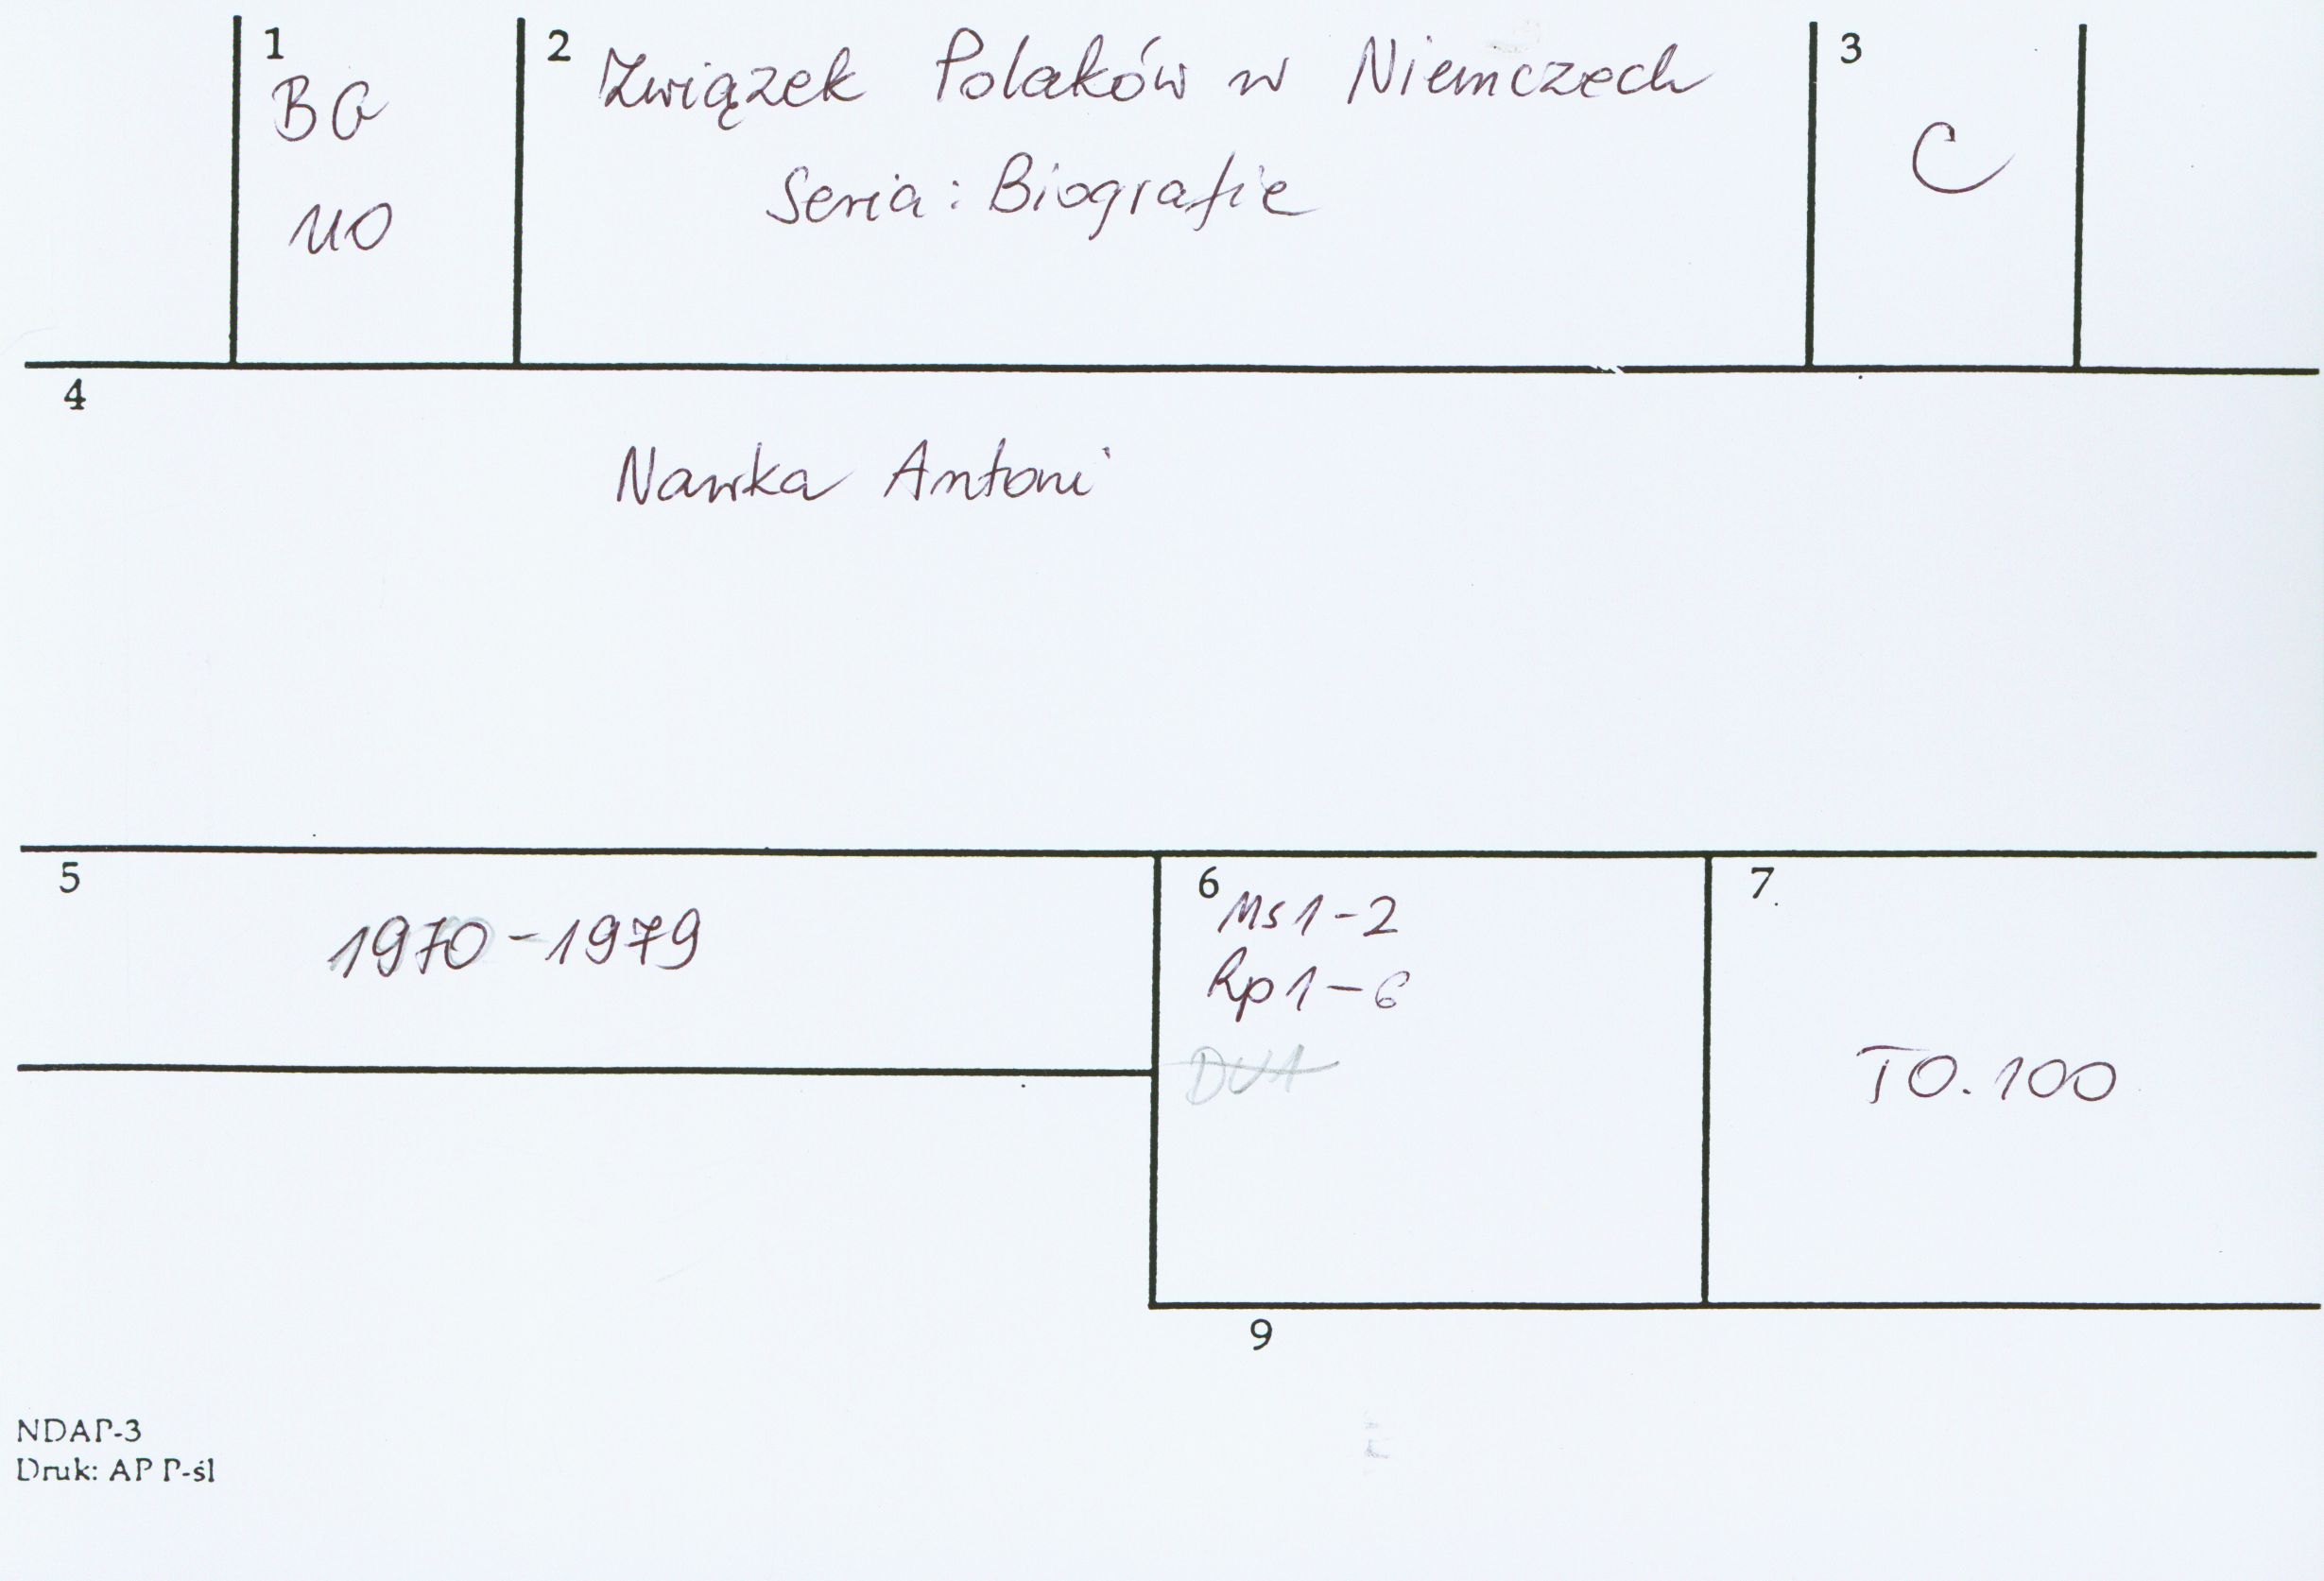 1
BG
110
2 Związek Polaków w Niemczech
Seria: Biografie
3
C
4
Nawka Antoni
5
1970-1979
6 Ms 1-2
Rp 1-6
7
TO. 100
9
NDAP-3
Druk: AP P-śl